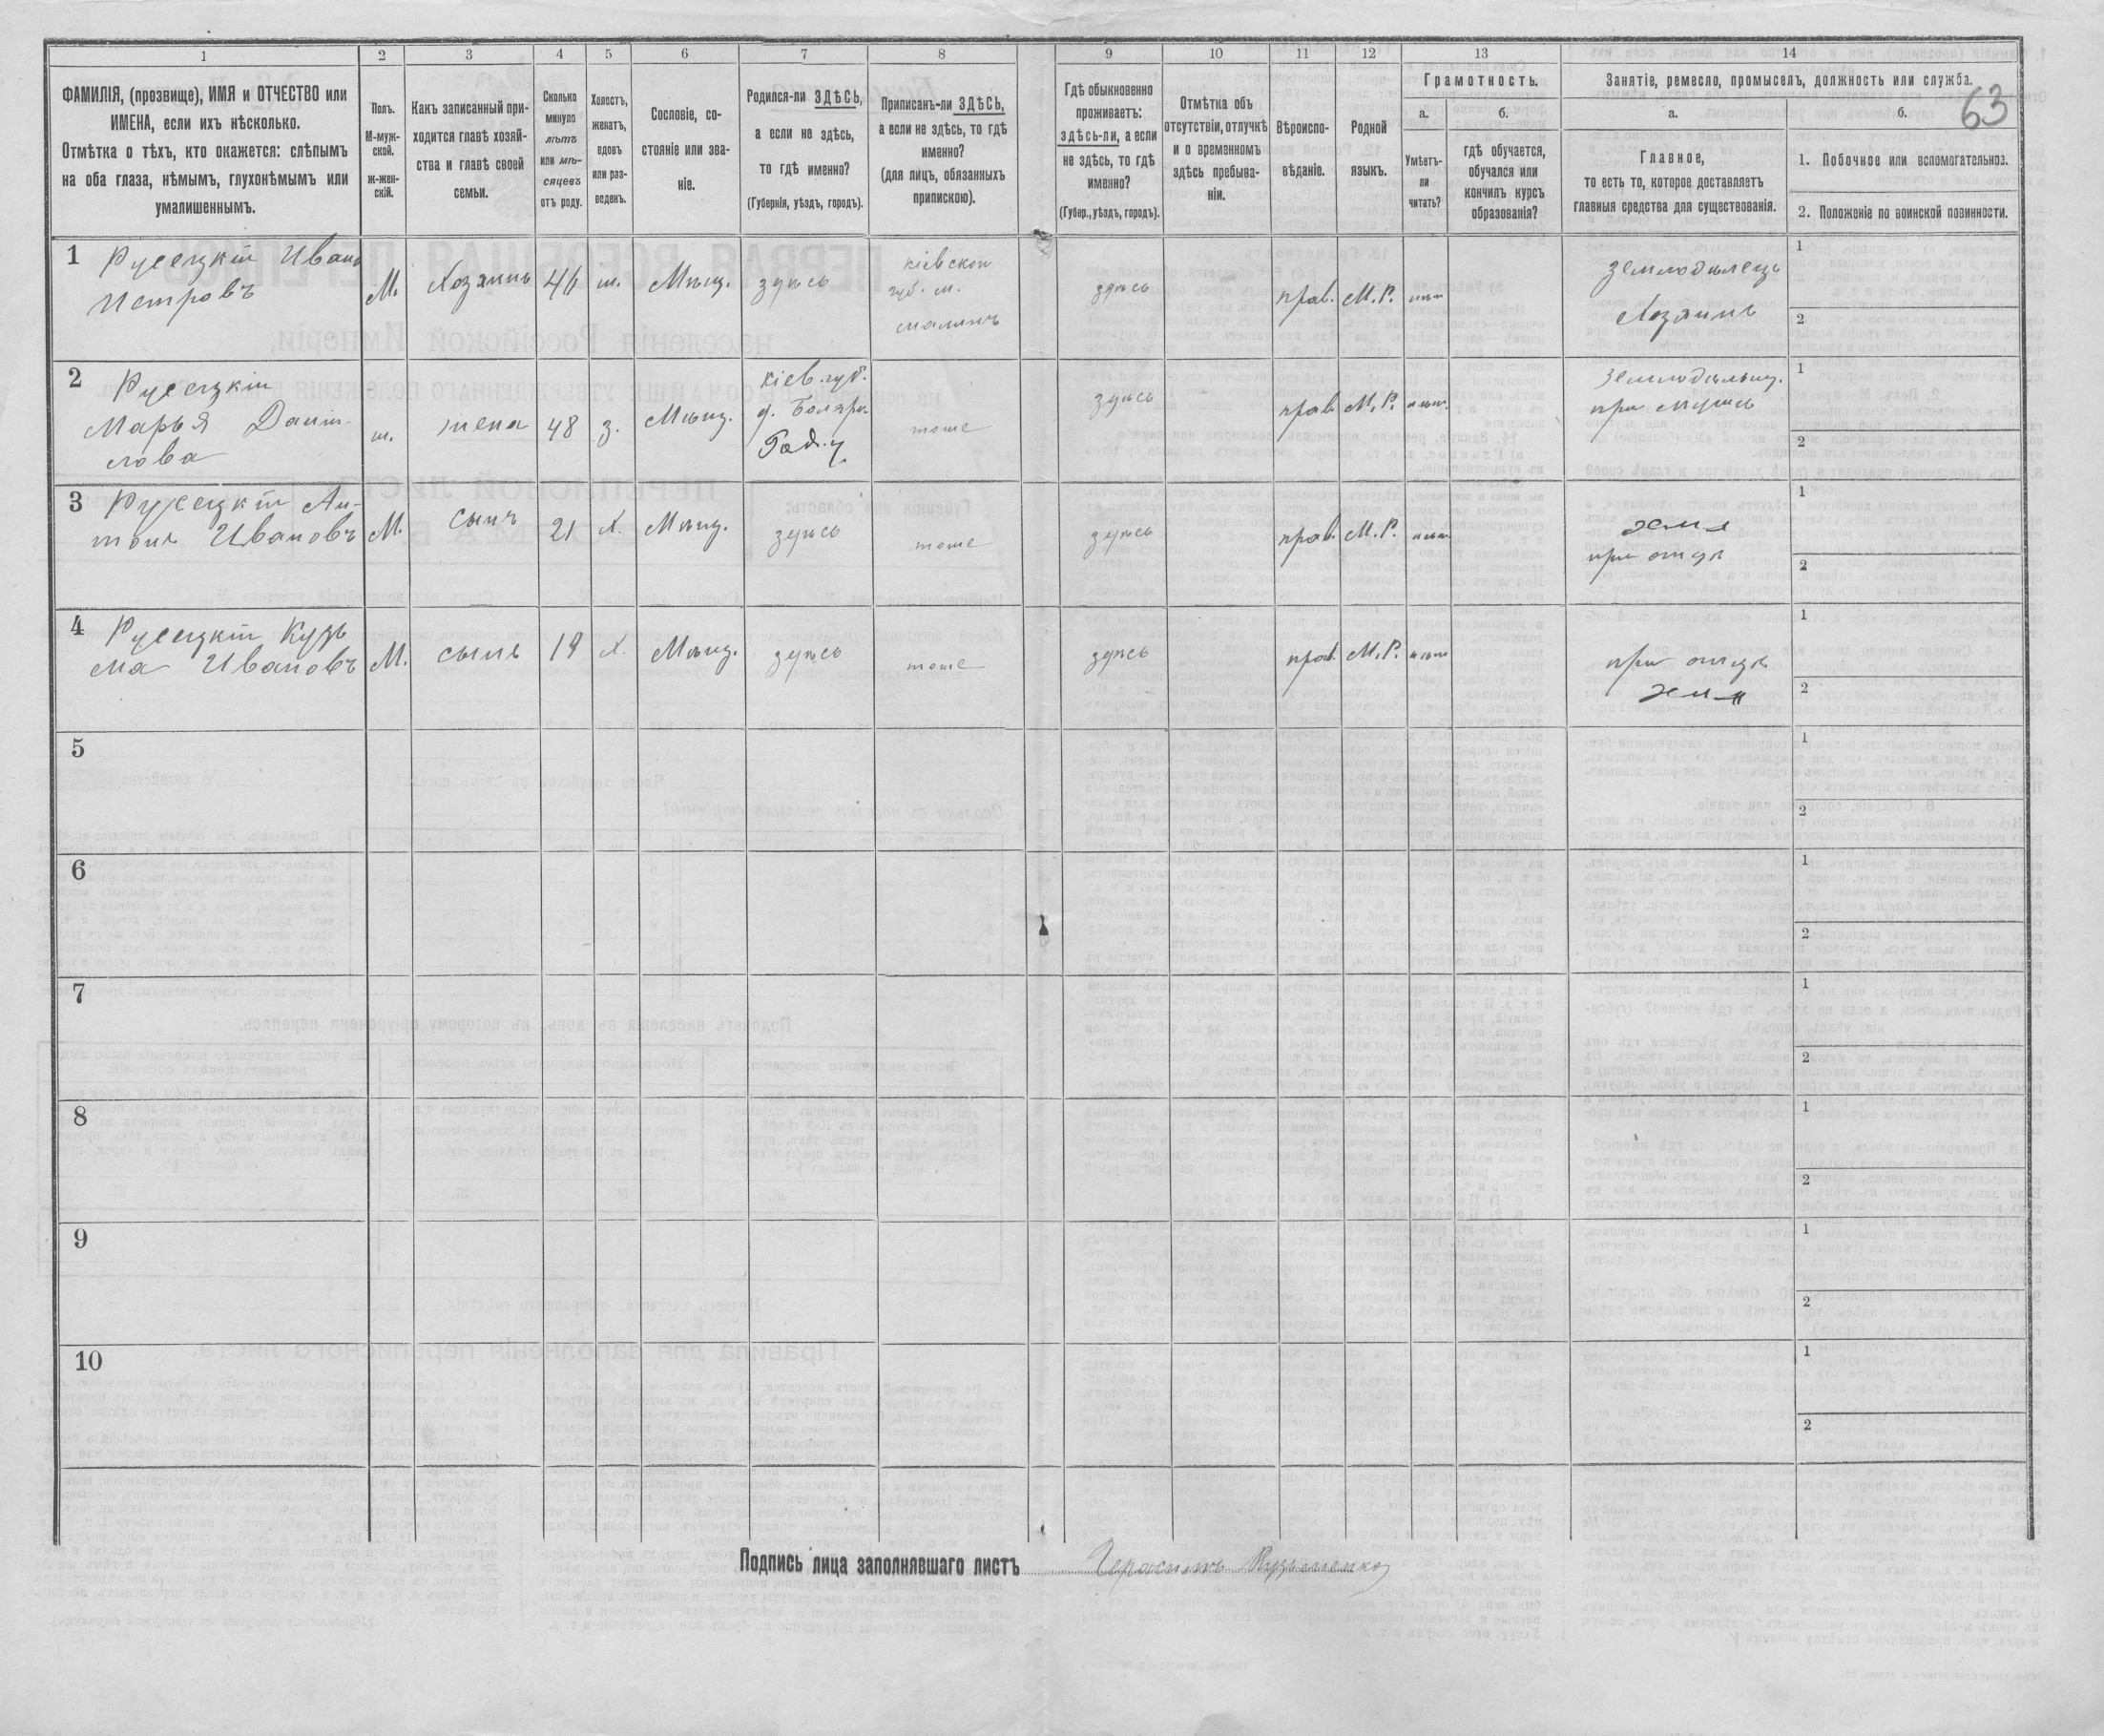 1
2
3
4
5
6
7
8
9
10
11
12
13
14
63
ФАМИЛІЯ, (прозвище), ИМЯ и ОТЧЕСТВО или
ИМЕНА, если ихъ нѣсколько.
Отмѣтка о тѣхъ, кто окажется: слѣпымъ
на оба глаза, нѣмымъ, глухонѣмымъ или
умалишеннымъ.
Полъ.
М-муж-
ской.
ж-жен-
скій.
Какъ записанный при-
ходится главѣ хозяй-
ства и главѣ своей
семьи.
Сколько
минуло
лѣтъ
или мѣ-
сяцевъ
отъ роду.
Холостъ,
женатъ,
вдовъ
или раз-
веденъ.
Сословіе, со-
стояніе или зва-
ніе.
Родился-ли ЗДѢСЬ,
а если не здѣсь,
то гдѣ именно?
(Губернія, уѣздъ, городъ).
Приписанъ-ли ЗДѢСЬ,
а если не здѣсь, то гдѣ
именно?
(для лицъ, обязанныхъ
припискою).
Гдѣ обыкновенно
проживаетъ:
здѣсь-ли, а если
не здѣсь, то гдѣ
именно?
(Губер., уѣздъ, городъ).
Отмѣтка объ
отсутствіи, отлучкѣ
и о временномъ
здѣсь пребыва-
ніи.
Вѣроиспо-
вѣданіе.
Родной
языкъ.
Грамотность.
а.
Умѣетъ-
ли
читать?
б.
гдѣ обучается,
обучался или
кончилъ курсъ
образованія?
Занятіе, ремесло, промыселъ, должность или служба.
а.
Главное,
то есть то, которое доставляетъ
главныя средства для существованія.
б.
1. Побочное или вспомогательноз.
2. Положеніе по воинской повинности.
1
Русецкій Иванъ
Петровъ
М.
Хозяинъ
46
ж.
Мѣщ.
здѣсь
кіевской
губ. м.
малинъ
здѣсь
прав.
М.Р.
землодѣлецъ
Хозяинъ
1
2
2
Русецкій
Марья Дани-
лова
ж.
жена
48
з.
Мѣщ.
кіев. губ.
Рад. у
тоже
здѣсь
прав.
М.Р.
при мужѣ
1
2
3
Русецкій Ан-
тонъ Ивановъ
М.
сынъ
21
х.
Мѣщ.
здѣсь
тоже
здѣсь
прав.
М.Р.
зем
при отцѣ
1
2
4
Русецкій Кузь
ма Ивановъ
М.
сынъ
х.
Мѣщ.
здѣсь
тоже
здѣсь
прав.
М.Р.
при отцѣ
зем
1
2
5
1
2
6
1
2
7
1
2
8
1
2
9
1
2
10
1
2
Подпись лица заполнявшаго листъ Герасимъ Кузьменко